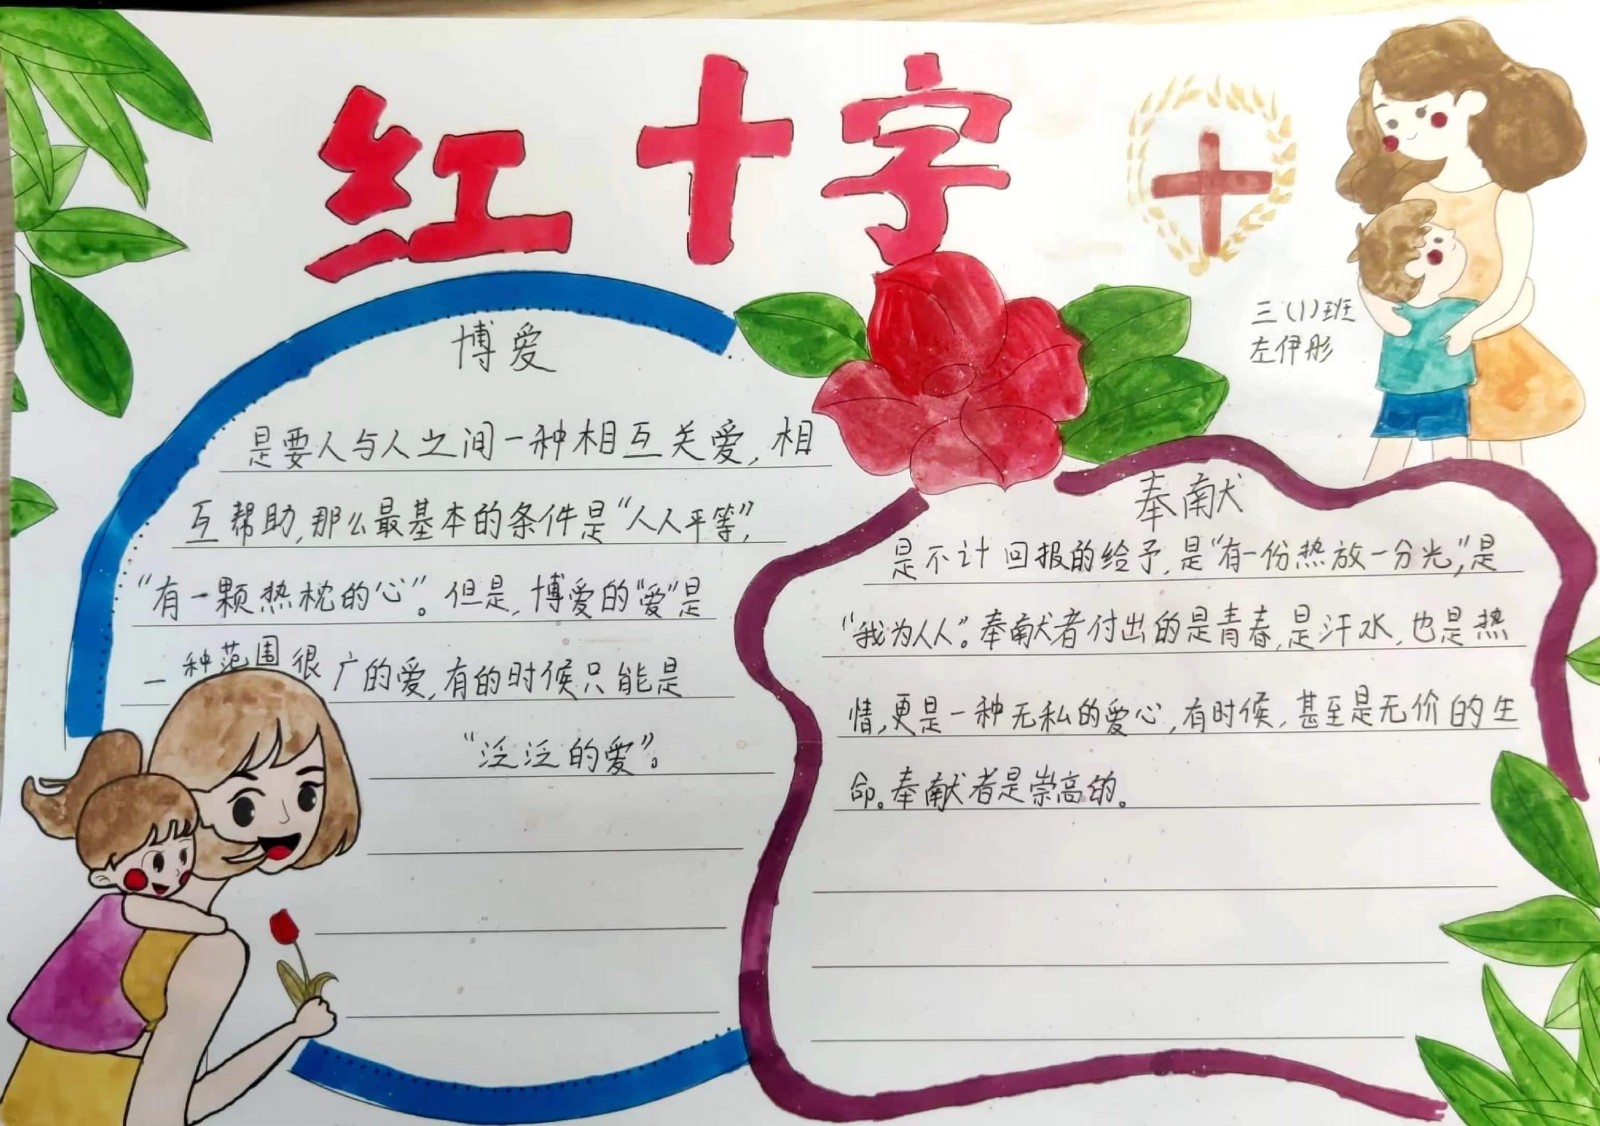 红十字
三(1)班
左伊彤
博爱
是要人与人之间一种相互关爱,相
互帮助,那么最基本的条件是“人人平等”,
“有一颗热枕的心”。但是,博爱的“爱”是
一种范围很广的爱,有的时候只能是
“泛泛的爱”。
奉献
是不计回报的给予,是“有一份热放一分光”,是
“我为人人”。奉献者付出的是青春,是汗水,也是热
情,更是一种无私的爱心,有时候,甚至是无价的生
命。奉献者是崇高的。